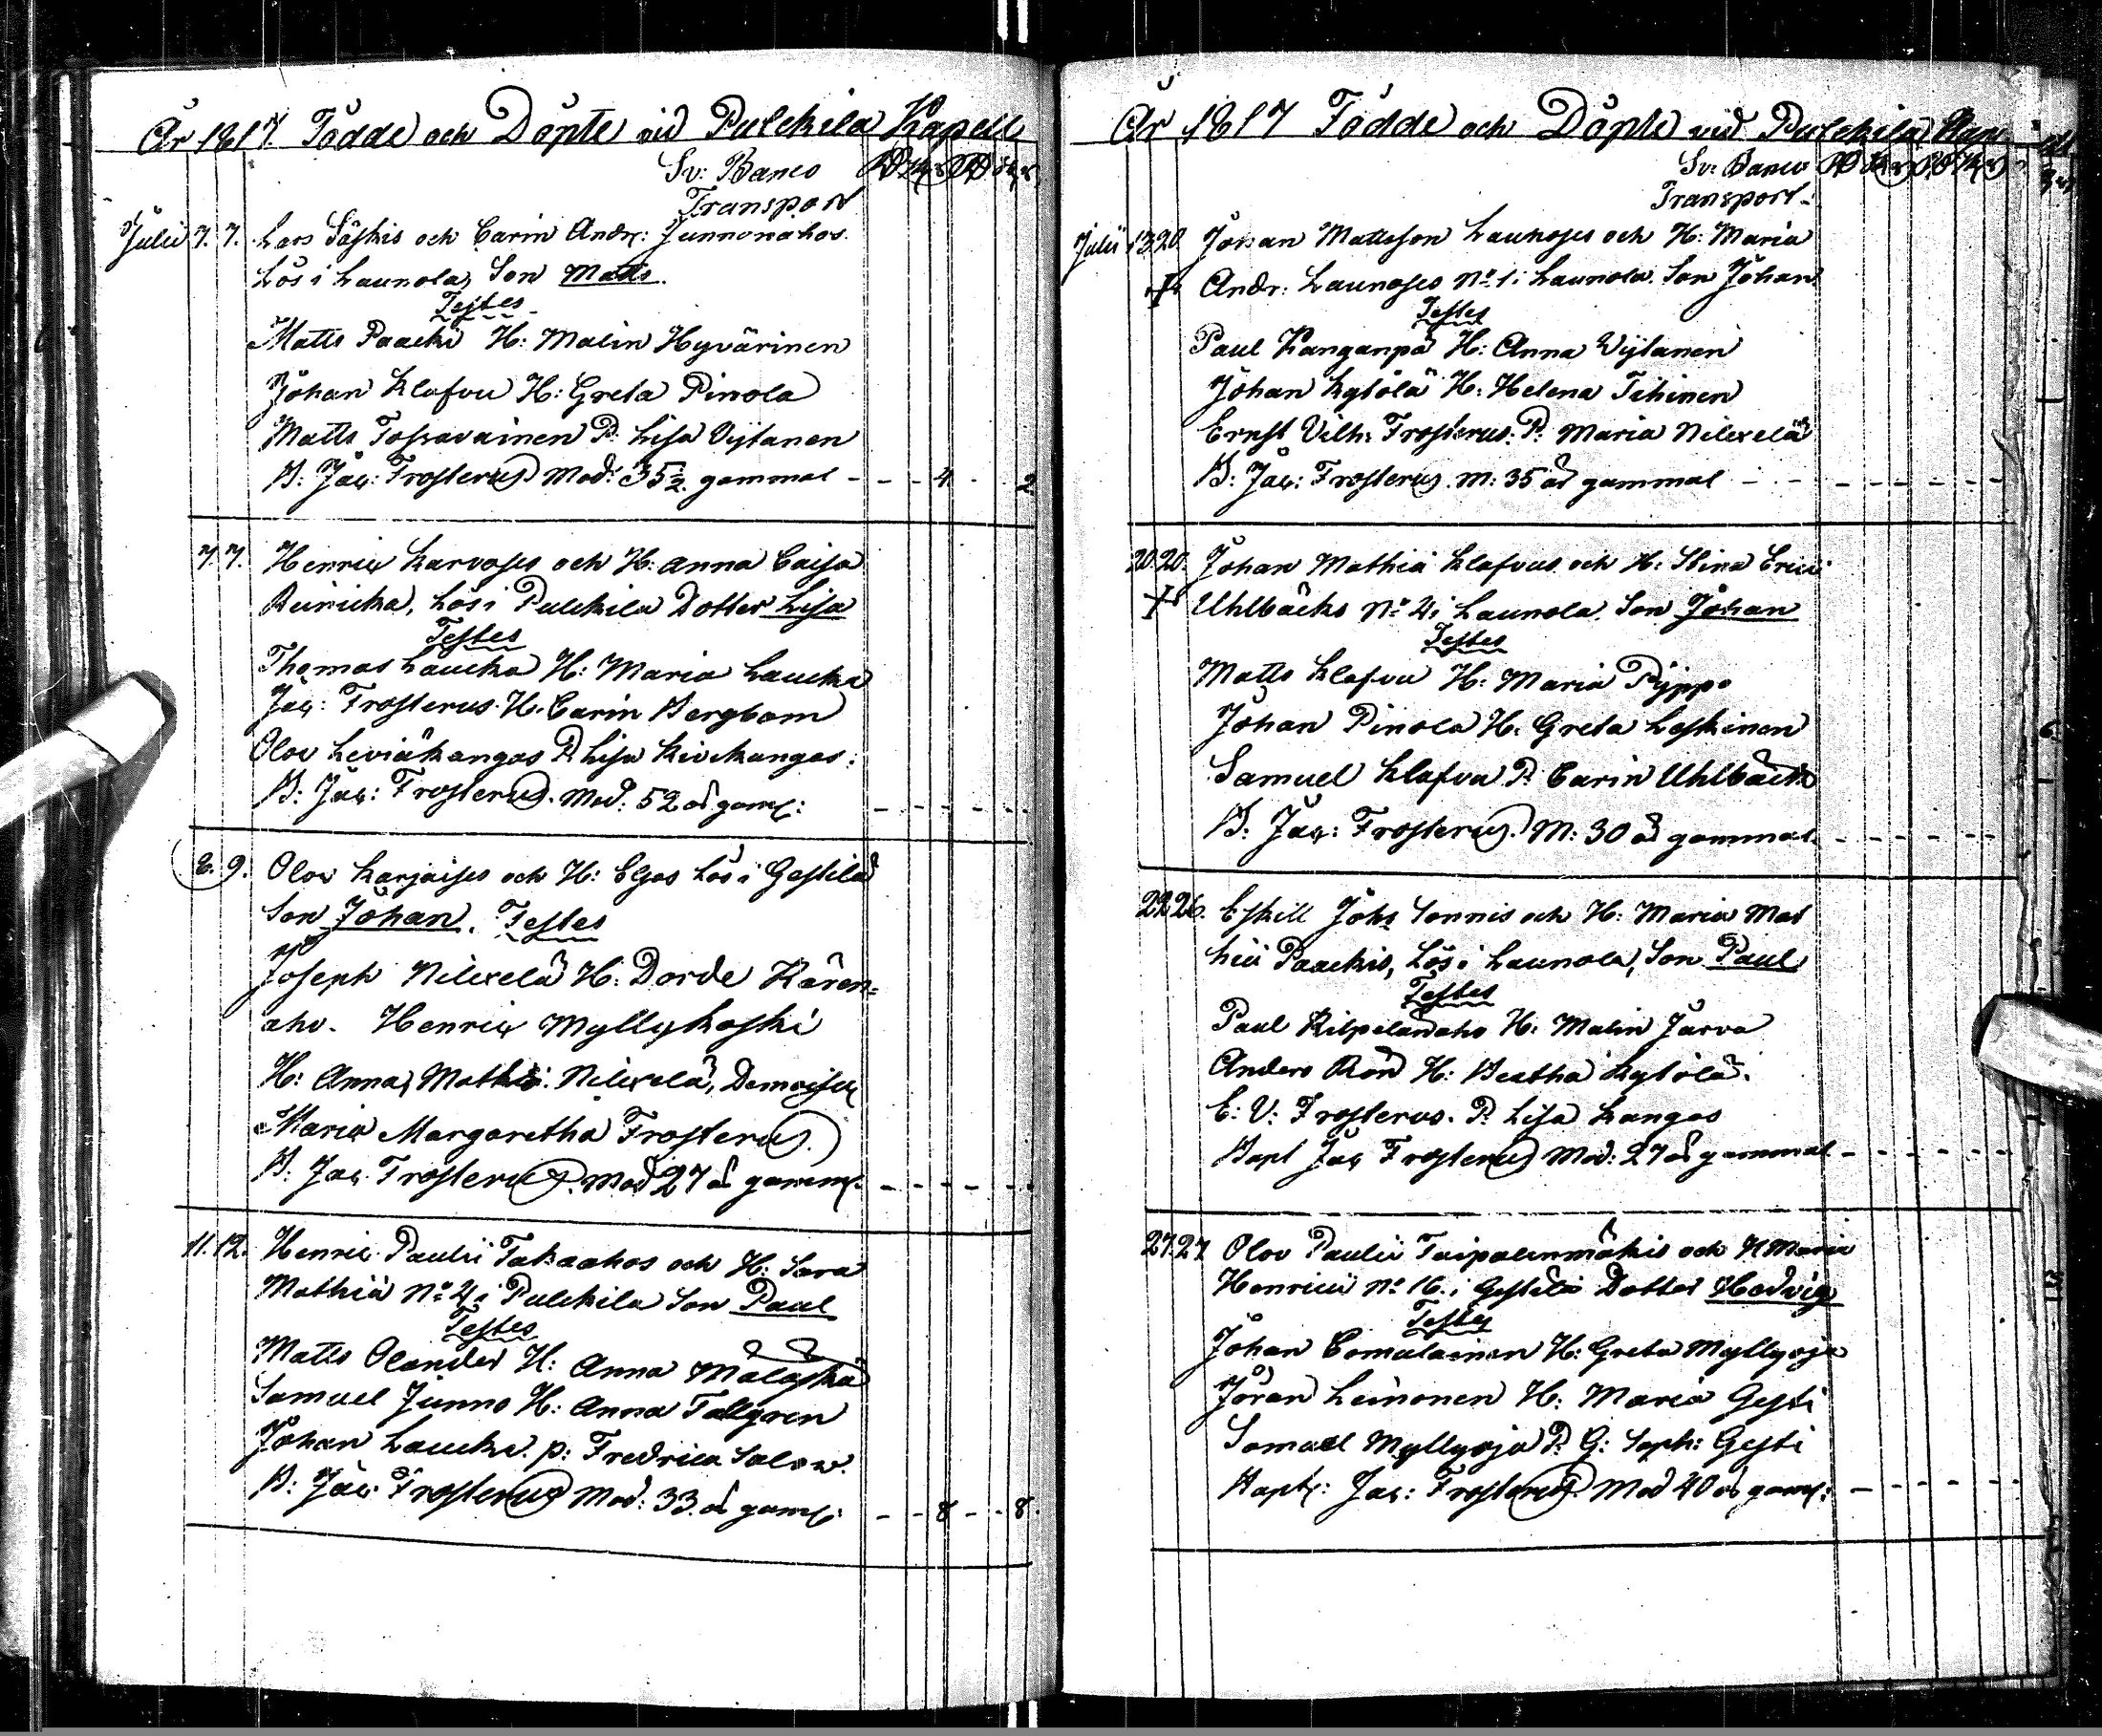 År 1817. Födde och Döpte vid Pulckila Kapell
Sv: Banco
Transport
Julii 7. 7. Lars Säskis och Carin Andr: Junnonahos
Lös i Launola, Son Matts.
Testes
Matts Paacki H: Malin Hyvärinen
Johan Klafvu H: Greta Pinola
Matts Toskavainen P: Lisa Vijtanen
B: Jac: Frosterus. Mod: 35 1/2. gammal - - - 4 - - 2
7. 7. Henric Karvoses och H: Anna Caisa
Lös i Pulckila Dotter Lisa
Testes
Thomas Laucka H: Maria Laucka
Jac: Frosterus. H. Carin Bergbom
Olov Leviäkangas P. Lisa Kivikangas:
B: Jac: Frosterus. Mod: 52 år gam: - - - - - -
8. 9. Olov Karjaises och H: Elsas Lös i Gestilä
Son Johan. Testes
Joseph Nilexelä H: Dorde Kären=
aho. Henric Myllykoski
H: Anna Mathiæ Nilexelä, Demoiselle
Maria Margaretha Frosterus.
B: Jac. Frosterus. Mod 27 år gamm. - - - - - -
11. 12. Henric Paulii Takaahos och H: Sara
Mathiæ No 4 i Pulckila Son Paul
Testes
Matts Olander H: Anna Mälaskä
Samuel Junno H: Anna Tallgren
Johan Laucka. p: Fredrica Salow.
B: Jac. Frosterus Mod: 33. år gam: - - 8 - - 8.
År 1817 Födde och Döpte vid Pulckila
Sv: Banco
Transport -
Julii 13 20. Johan Mattsson Launoses och H: Maria
Andr: Launoses No 1 i Launola. Son Johan
Testes
Paul Kanganpä H: Anna Vijtanen
Johan Kytölä H: Helena Tihinen
Ernst Vilh: Frosterus. P: Maria Nilexelä
B: Jac: Frosterus. M: 35 år gammal - - - - - -
20. 20. Johan Mathiæ Klafvus och H: Stina Erici
Uhlbäcks No 4 i Launola. Son Johan
Testes
Matts Klafvu H: Maria Pyppo
Johan Pinola H: Greta Leskinen
Samuel Klafvu P: Carin Uhlbäck
B: Jac: Frosterus. M: 30 år gammal. - - - - - -
22 26. Eskill Joh: Sonnis och H: Maria Mat
hiæ Paackis, Lös i Launola, Son Paul
Testes
Paul Kilpelänaho H: Malin Järva
Anders Rön H: Beatha Kytölä.
E: V: Frosterus. P: Lisa Kangas
Bapt Jac Frosterus Mod: 27 år gammal - - - - - -
27. 27. Olov Paulii Taipalenmäkis och H Maria
Henrici No 16. i Gestilä Dotter Hedvig
Testes
Johan Comulainen H: Greta Myllyoja
Jöran Leinonen H: Maria Gesti
Samuel Myllyoja P: G: Soph: Gesti
Bapt: Jac: Frosterus. Mod 40 år gam: - - - - - -